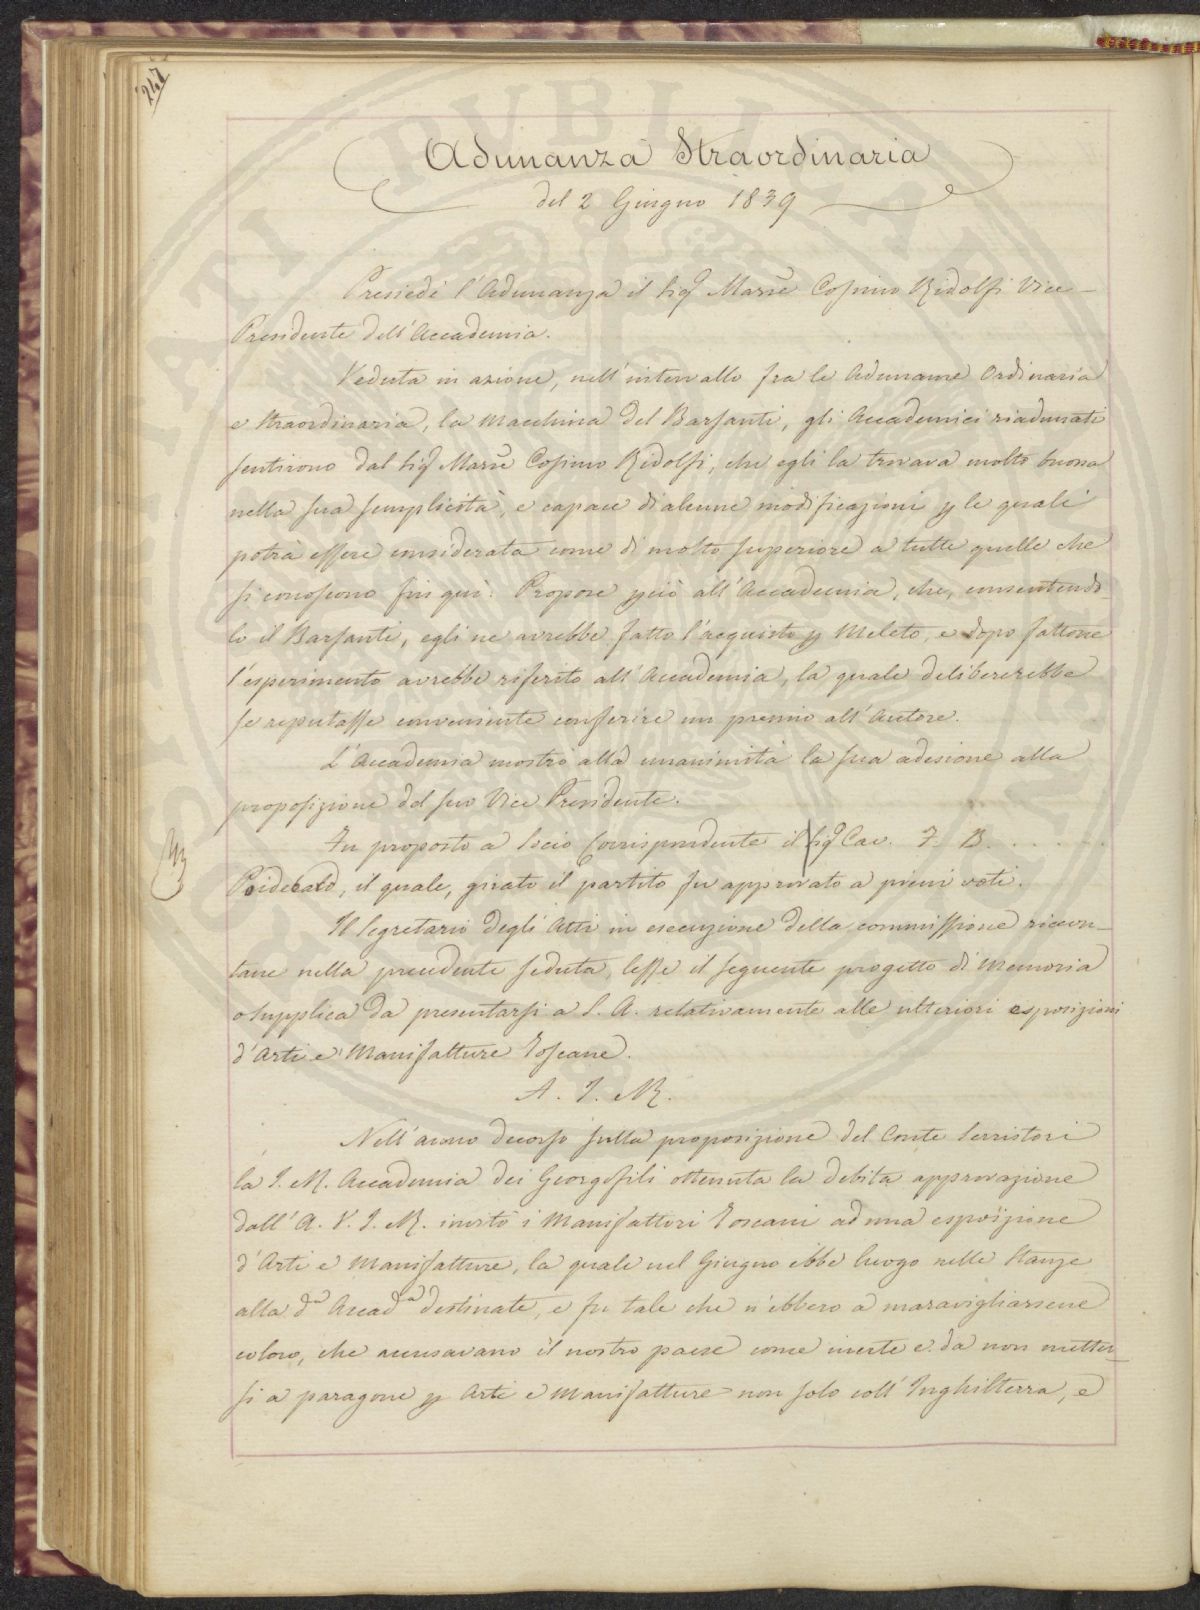 247
Adunanza Straordinaria
del 2 Giugno 1839
Presiedè l'Adunanza il Sigr Marse Cosimo Ridolfi Vice-
Presidente dell'Accademia.
Veduta in azione, nell'intervallo fra le Adunanze Ordinaria
e Straordinaria, la Macchina del Barsanti, gli Accademici riadunati
sentirono dal Sigr Marse Cosimo Ridolfi, che egli la trovava molto buona
nella sua semplicità, e capace di alcune modificazioni p le quali
potrà essere considerata come di molto superiore a tutte quelle che
si conoscono fin quì. Propose pciò all'Accademia, che, consentendo-
lo il Barsanti, egli ne avrebbe fatto l'acquisto p Meleto, e dopo fattone
l'esperimento avrebbe riferito all'Accademia, la quale delibererebbe
se reputasse conveniente conferire un premio all'Autore.
L'Accademia mostrò alla unanimità la sua adesione alla
proposizione del suo Vice Presidente.
Fu proposto a Socio Corrispondente il Sigr Cav. F. B. . . . . . .
Poidebard, il quale, girato il partito fu approvato a pieni voti.
Il Segretario degli Atti in esecuzione della commissione ricevu-
tane nella precedente seduta, lesse il seguente progetto di Memoria
o Supplica da presentarsi a S. A. relativamente alle ulteriori esposizioni
d'Arti e Manifatture Toscane.
A. I. e R.
Nell'anno decorso sulla proposizione del Conte Serristori
la I. e R. Accademia dei Georgofili ottenuta la debita approvazione
dall'A. V. I. e R. invitò i Manifattori Toscani ad una esposizione
d'Arti e Manifatture, la quale nel Giugno ebbe luogo nelle Stanze
alla da Accada destinate, e fu tale che n'ebbero a maravigliarsene
coloro, che accusavano il nostro paese come inerte e da non metter-
si a paragone p Arti e Manifatture non solo coll'Inghilterra, e